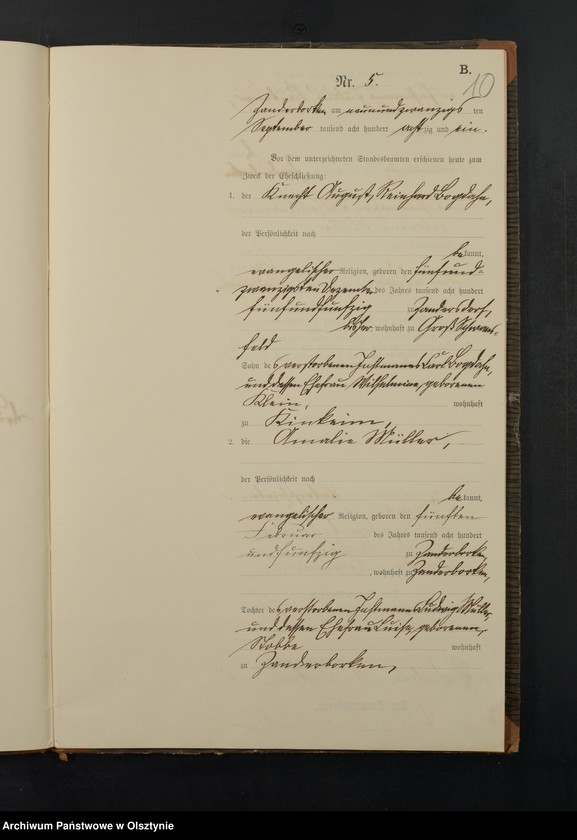 B.
10
Nr. 5.
Zanderborken am neunundzwanzigsten
September tausend acht hundert achtzig und ein.
Vor dem unterzeichneten Standesbeamten erschienen heute zum
Zweck der Eheschließung:
1. der Knecht August, Reinhard Bogdahn,
der Persönlichkeit nach
bekannt,
evangelischer Religion, geboren den fünfund-
zwanzigsten Dezember des Jahres tausend acht hundert
fünfundfunfzig zu Zandersdorf,
wohnhaft zu Groß Schwans-
feld
Sohn des verstorbenen Instmannes Carl Bogdahn,
und dessen Ehefrau Wilhelmine, geborenen
Klein, wohnhaft
zu Kinkeim,
2. die Amalie Müller,
der Persönlichkeit nach
bekannt,
evangelischer Religion, geboren den fünften
Februar des Jahres tausend acht hundert
undfunfzig zu Zanderborken,
, wohnhaft zu Zanderborken,
Tochter des verstorbenen Instmannes Ludwig Müller,
und dessen Ehefrau Luise, geborenen,
Stobbe wohnhaft
zu Zanderborken,
Archiwum Państwowe w Olsztynie